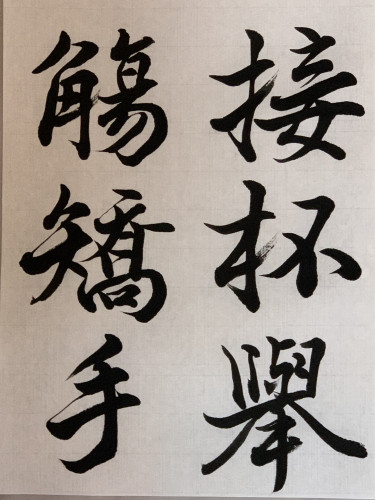 接杯舉
觴矯手